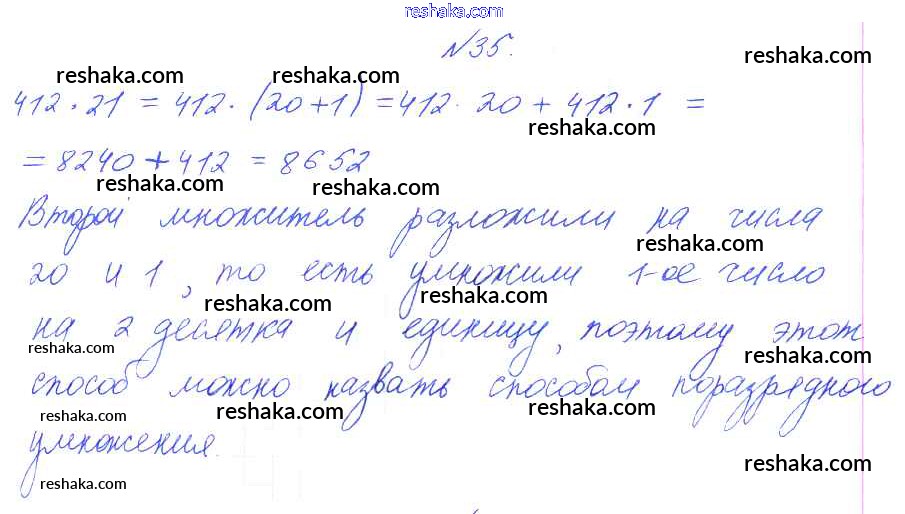 reshaka.com
№35.
reshaka.com
reshaka.com reshaka.com
412 · 21 = 412 · (20+1) = 412 · 20 + 412 · 1 =
reshaka.com
= 8240 + 412 = 8652
reshaka.com reshaka.com
Второй множитель разложили на числа
reshaka.com
20 и 1, то есть умножили 1-ое число
reshaka.com reshaka.com
на 2 десятка и единицу, поэтому этот
reshaka.com reshaka.com
способ можно назвать способом поразрядного
reshaka.com reshaka.com reshaka.com
умножения.
reshaka.com reshaka.com